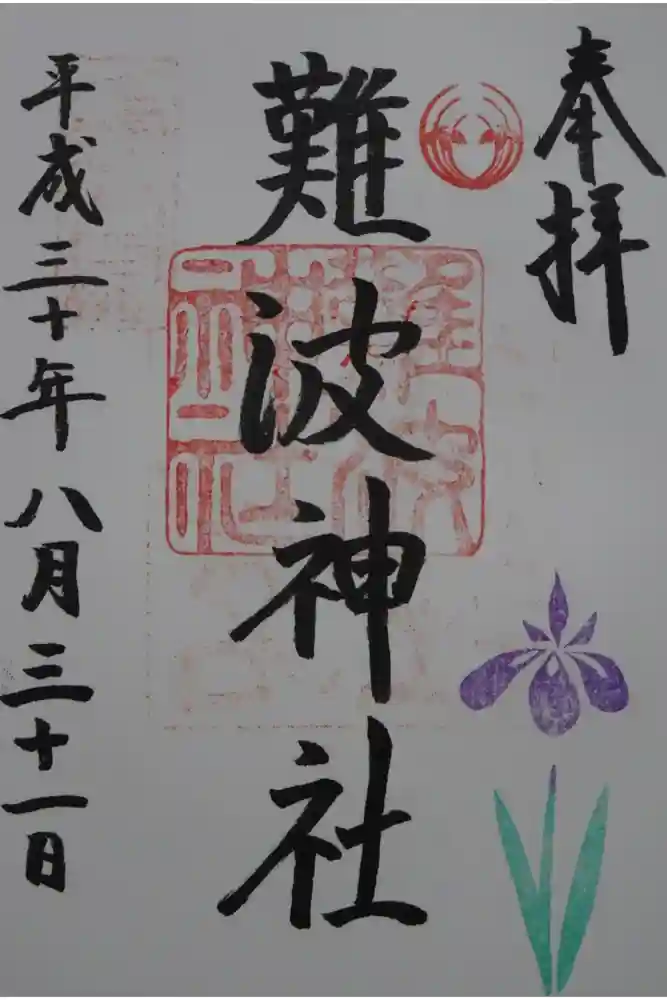 奉拝
難波神社
平成三十年八月三十一日